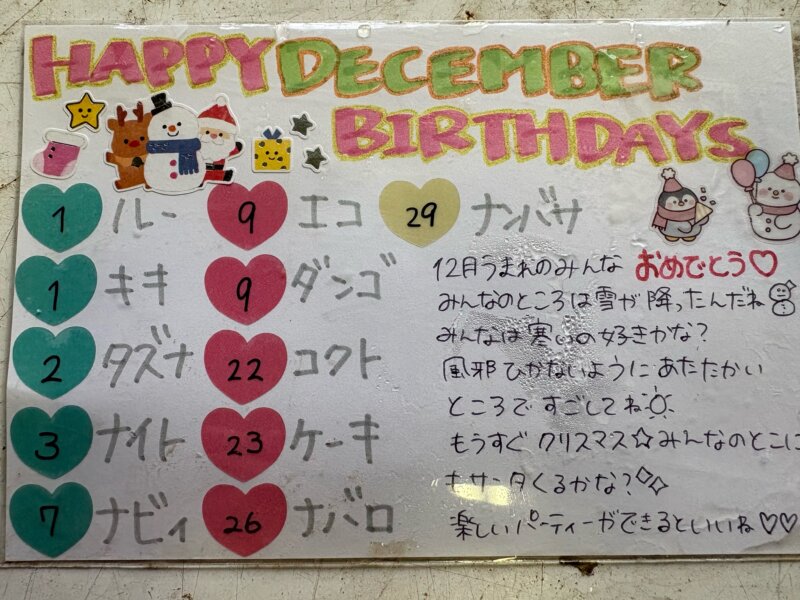 HAPPY DECEMBER
BIRTHDAYS
1 ルー
1 キキ
2 タズナ
3 ナイト
7 ナビィ
9 エコ
9 ダンゴ
22 コクト
23 ケーキ
26 ナバロ
29 ナンバサ
12月うまれのみんな おめでとう♡
みんなのところは雪が降ったんだね
みんなは寒いの好きかな?
風邪ひかないようにあたたかい
ところですごしてね
もうすぐクリスマス☆みんなのとこに
もサンタくるかな?
楽しいパーティーができるといいね♡♡